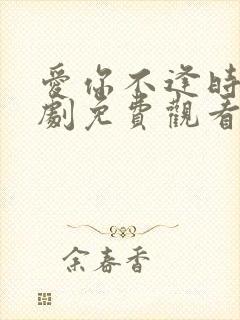 愛你不逢時
劇免費觀看
余春香